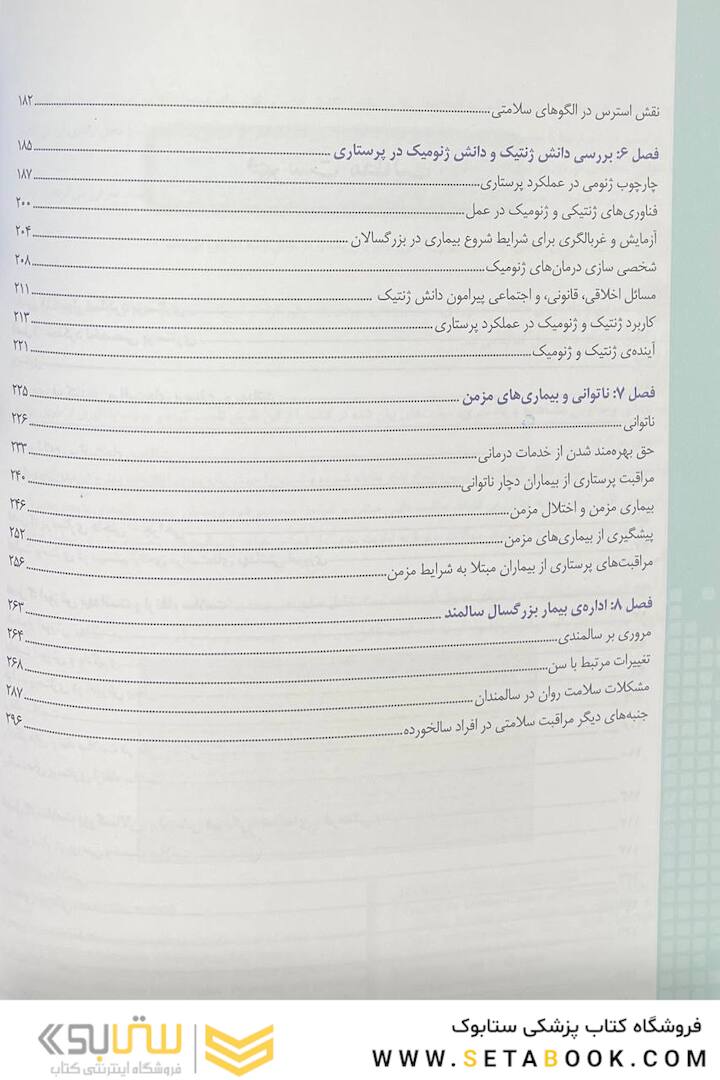 نقش استرس در الگوهای سلامتی ۱۸۲
فصل ۶: بررسی دانش ژنتیک و دانش ژنومیک در پرستاری ۱۸۵
چارچوب ژنومی در عملکرد پرستاری ۱۸۷
فناوری‌های ژنتیکی و ژنومیک در عمل ۲۰۰
آزمایش و غربالگری برای شرایط شروع بیماری در بزرگسالان ۲۰۴
شخصی سازی درمان‌های ژنومیک ۲۰۸
مسائل اخلاقی، قانونی، و اجتماعی پیرامون دانش ژنتیک ۲۱۱
کاربرد ژنتیک و ژنومیک در عملکرد پرستاری ۲۱۳
آینده‌ی ژنتیک و ژنومیک ۲۲۱
فصل ۷: ناتوانی و بیماری‌های مزمن ۲۲۵
ناتوانی ۲۲۶
حق بهره‌مند شدن از خدمات درمانی ۲۳۳
مراقبت پرستاری از بیماران دچار ناتوانی ۲۴۰
بیماری مزمن و اختلال مزمن ۲۴۶
پیشگیری از بیماری‌های مزمن ۲۵۲
مراقبت‌های پرستاری از بیماران مبتلا به شرایط مزمن ۲۵۶
فصل ۸: اداره‌ی بیمار بزرگسال سالمند ۲۶۳
مروری بر سالمندی ۲۶۴
تغییرات مرتبط با سن ۲۶۸
مشکلات سلامت روان در سالمندان ۲۸۷
جنبه‌های دیگر مراقبت سلامتی در افراد سالخورده ۲۹۶
فروشگاه کتاب پزشکی ستابوک
WWW.SETABOOK.COM
ستابوک
فروشگاه اینترنتی کتاب